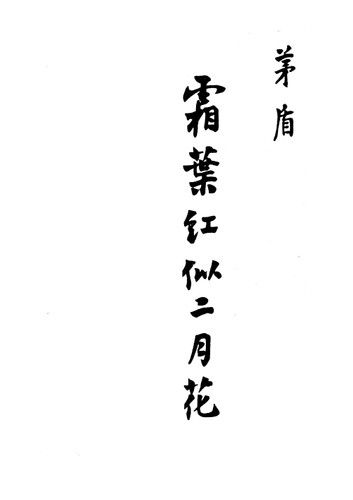 茅盾
霜葉红似二月花